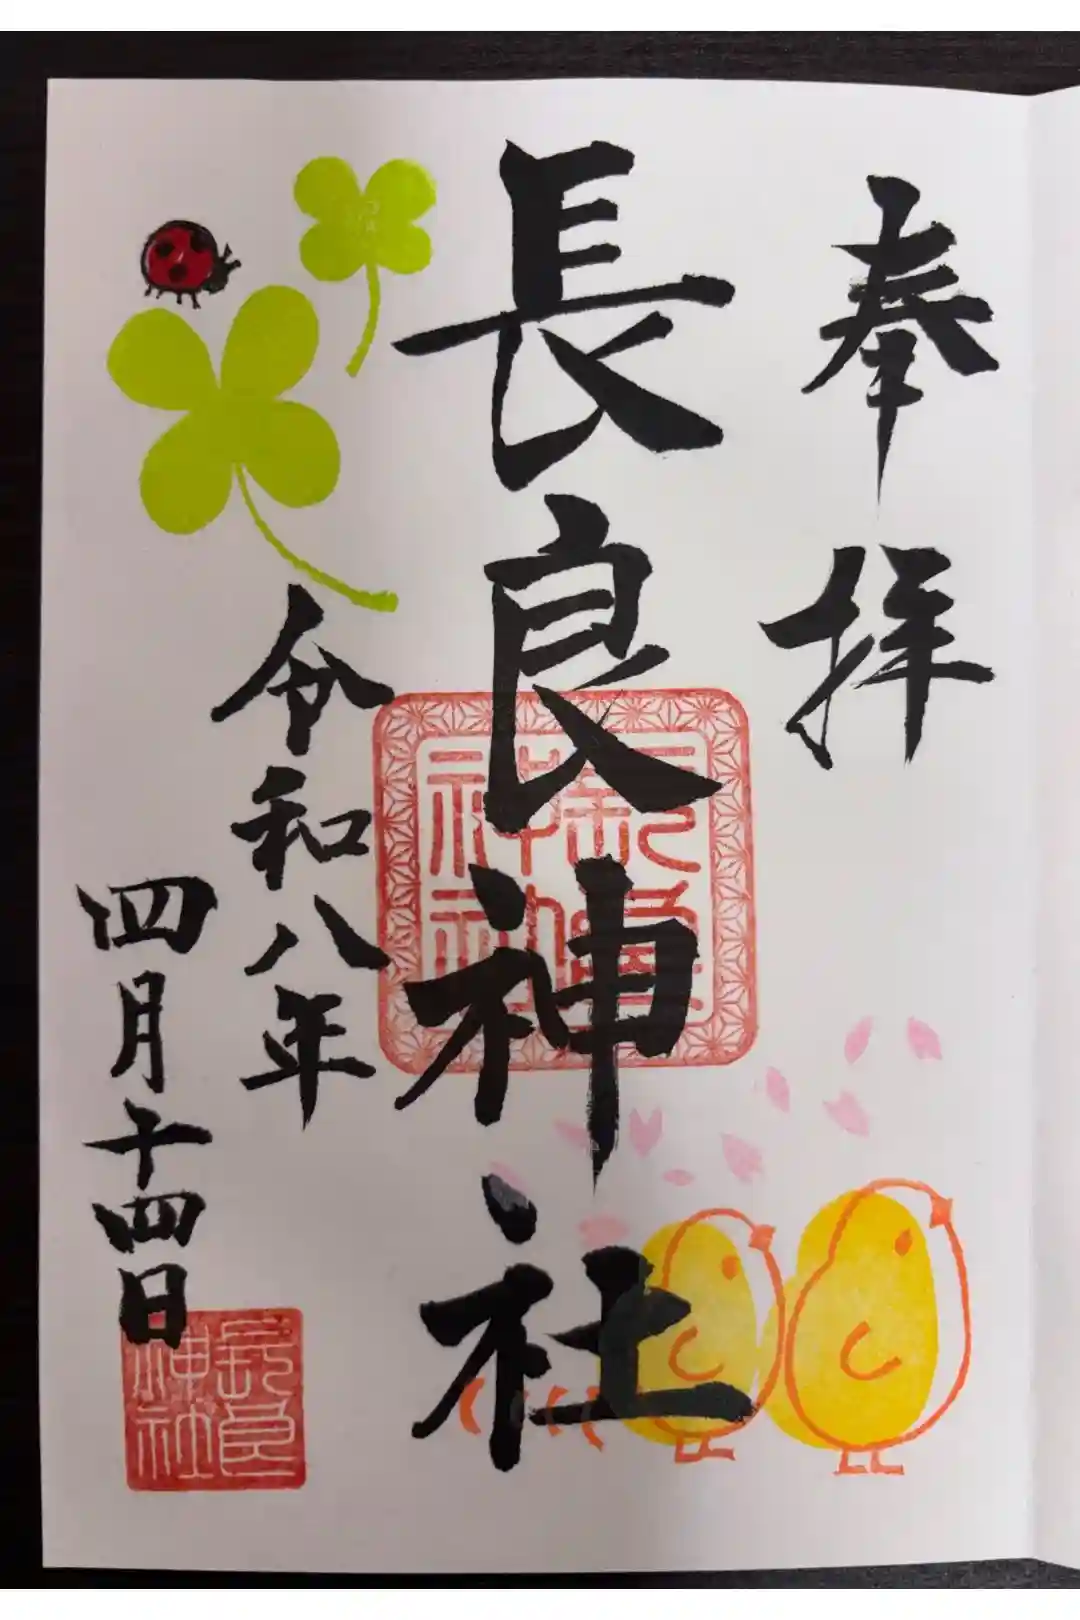 奉拝
長良神社
令和八年
四月十四日
長良
神社